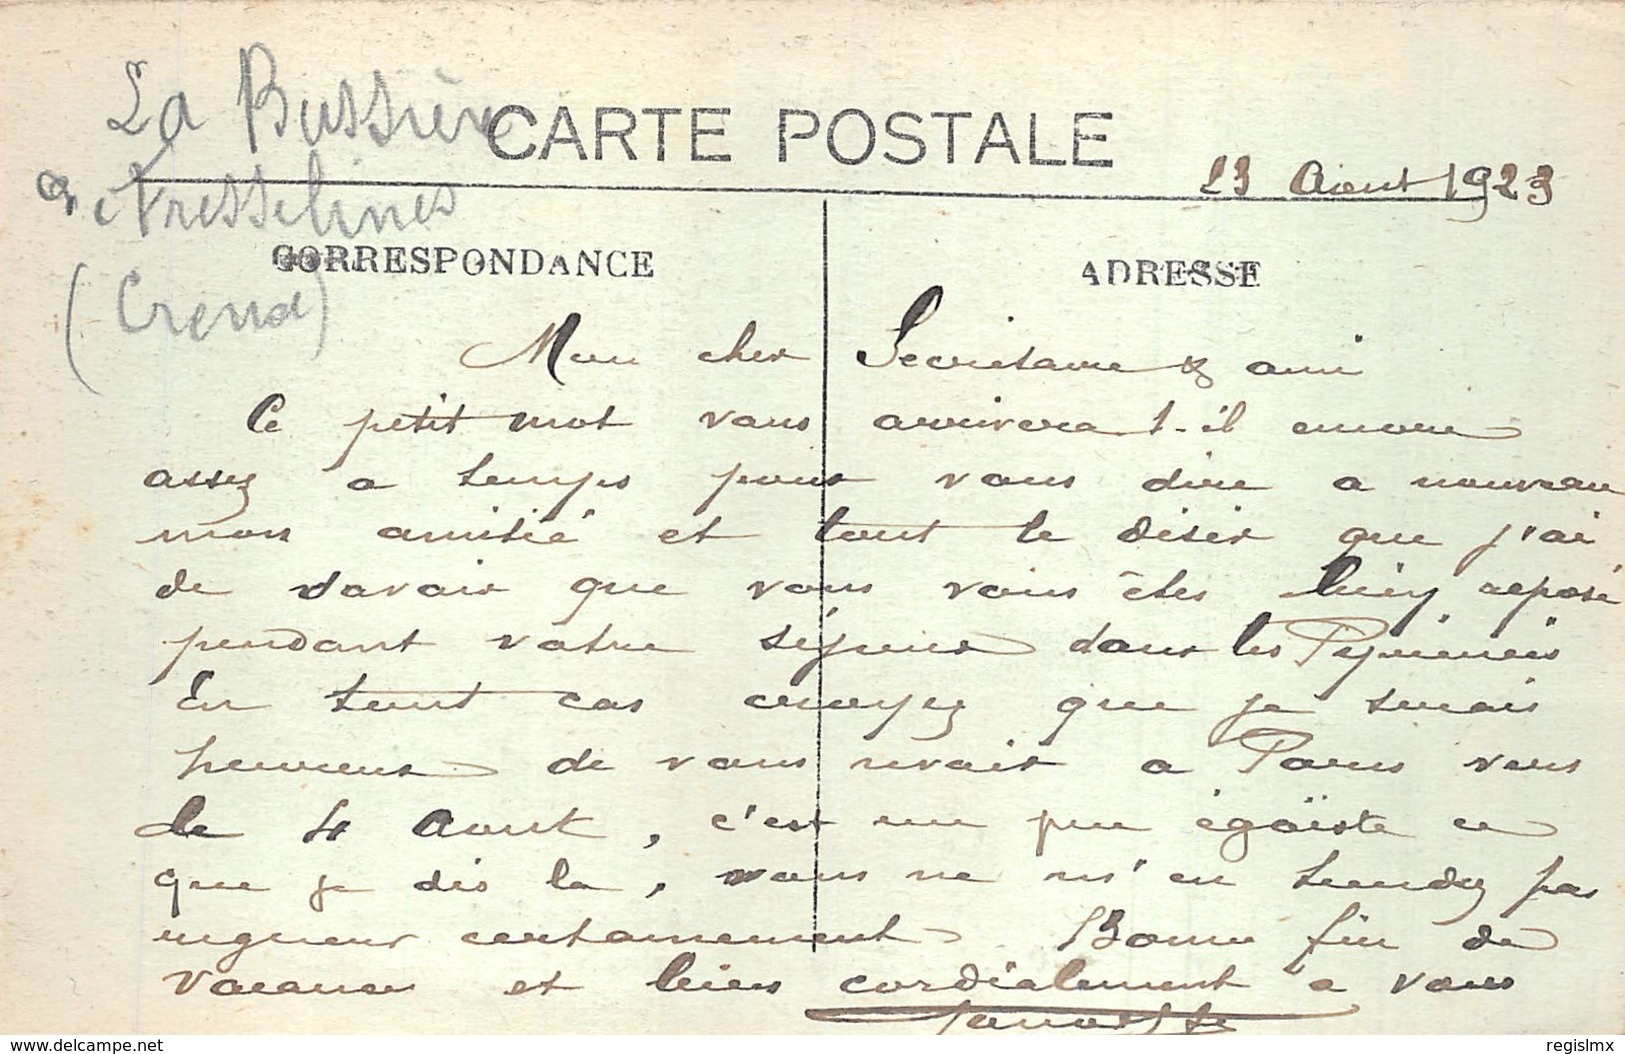 La Bussière
CARTE POSTALE
à Fresselines
23 Aout 1923
CORRESPONDANCE
ADRESSE
(Creuse)
Mon cher Secretaire & ami
Ce petit mot vous arrivera t-il encore
assez a temps pour vous dire a nouveau
mon amitié et tout le désir que j'ai
de savoir que vous vous êtes bien reposé
pendant votre séjour dans les Pyrénées
En tout cas croyez que je serais
heureux de vous revoir a Paris vers
le 4 Aout, c'est un peu égoïste ce
que je dis la, vous ne m'en tiendrez pas
rigueur certainement Bonne fin de
vacances et bien cordialement a vous
www.delcampe.net
regislmx